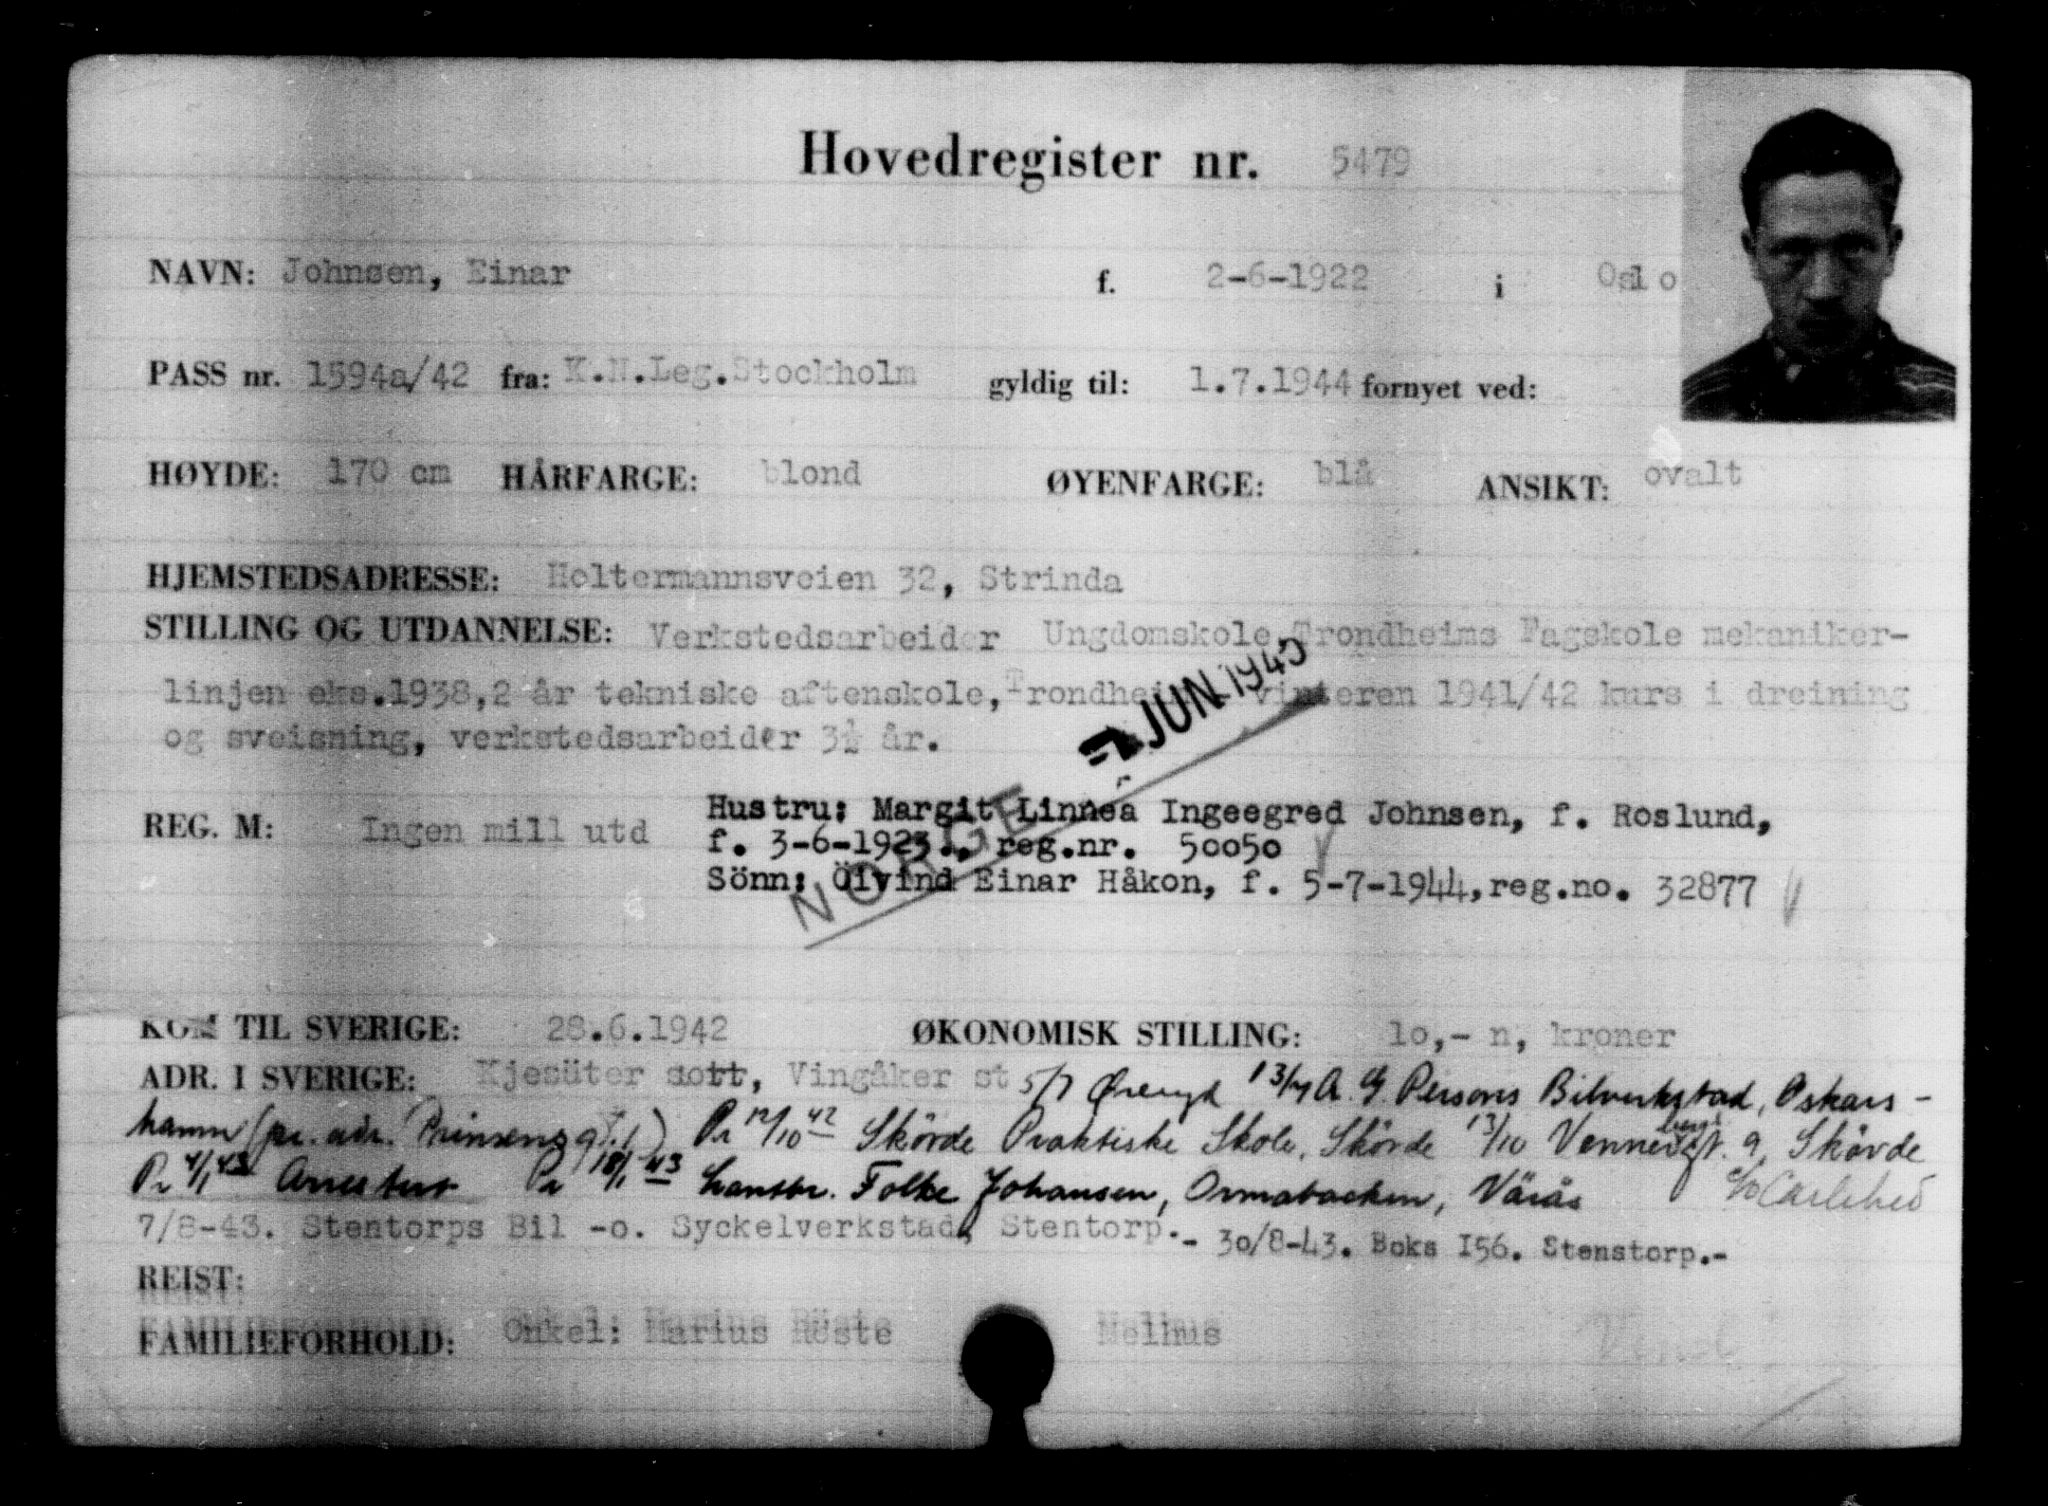 Hovedregister nr. 5479
NAVN: Johnsen, Einar f. 2-6-1922 i Oslo
PASS nr. 1594a/42 fra: K.N.Leg.Stockholm gyldig til: 1.7.1944 fornyet ved:
HØYDE: 170 cm HÅRFARGE: blond ØYENFARGE: blå ANSIKT: ovalt
HJEMSTEDSADRESSE: Holtermannsveien 32, Strinda
STILLING OG UTDANNELSE: Verkstedsarbeider Ungdomskole, Trondheims Fagskole mekaniker-
linjen eks.1938,2 år tekniske aftenskole, Trondheim vinteren 1941/42 kurs i dreining
og sveisning, verkstedsarbeider 3½ år.
JUN. 1945
NORGE
REG. M: Ingen mill utd
Hustru: Margit Linnea Ingeegred Johnsen, f. Roslund,
f. 3-6-1923., reg.nr. 50050
Sönn: Öivind Einar Håkon, f. 5-7-1944, reg.no. 32877
KOM TIL SVERIGE: 28.6.1942 ØKONOMISK STILLING: 10,- n, kroner
ADR. I SVERIGE: Kjesüter sott, Vingåker st 5/7 Øreryd 13/7 A. G Persons Bilverkstad, Oskars-
hamn (pr. adr. Prinsensgt. 1) Pr 12/10 42 Skövde Praktiske Skole, Skövde 13/10 9, Skövde
Pr 4/1 43 Pr 18/1 43 Lantbr. Folke Johansen, Ormabacken, Värås c/o
7/8-43. Stentorps Bil -o. Syckelverkstad, Stentorp.- 30/8-43. Boks 156. Stenstorp.-
REIST:
FAMILIEFORHOLD: Onkel: Marius Röste Melhus